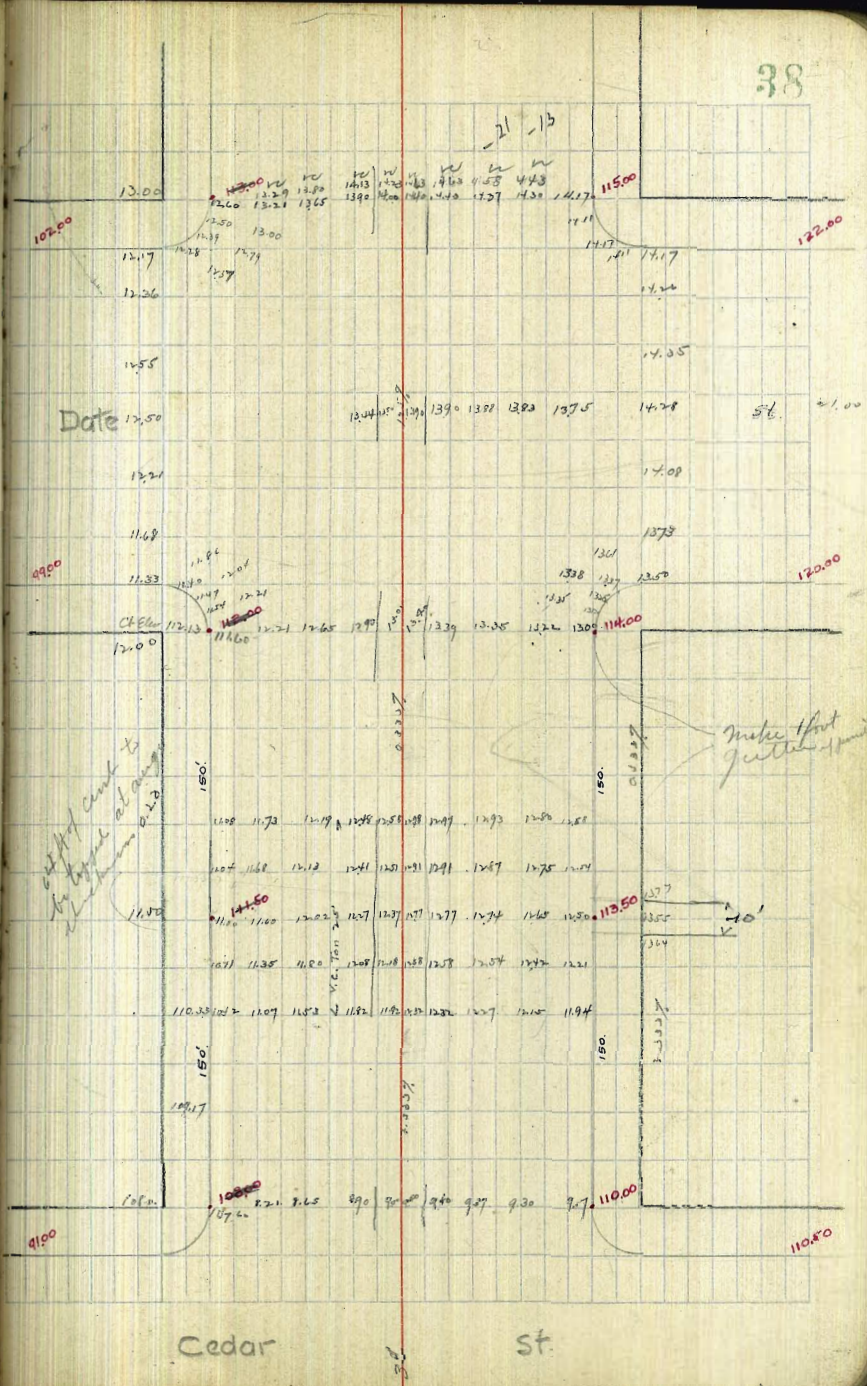 38
-21 -13
13.00 113.00 13.29 13.80 14.13 14.23 14.63 14.63 14.58 4.43 115.00
12.60 13.21 13.65 13.90 14.00 14.40 14.40 14.37 14.30 14.17
102.00 12.50 13.00 14.11 122.00
12.39
12.17 12.28 12.79 14.17 14.11 14.17
12.57
12.36 14.26
12.55 14.35
Date 12.50 13.44 13.90 13.90 13.88 13.83 13.75 14.28 St.
12.21 14.08
11.68 13.73
11.86 13.61
99.00 11.33 11.40 12.04 13.38 13.50 120.00
11.47 12.21 13.35
Ct Elev 112.13 112.00 12.21 12.65 12.90 13.39 13.35 13.22 13.09 114.00
12.00 111.60
0.333%
0.333%
Make 1 foot
gutter
150' 150.
0.20
11.08 11.73 12.19 12.48 12.58 12.98 12.97 12.93 12.80 12.58
11.04 11.68 12.13 12.41 12.51 12.91 12.91 12.87 12.75 12.54
13.77
11.50 111.50 11.00 11.60 12.02 12.27 12.37 12.77 12.77 12.74 12.65 12.50 113.50 13.55 10'
13.64
10.71 11.35 11.80 12.08 12.18 12.58 12.58 12.54 12.42 12.21
V.C.
110.33 10.42 11.07 11.53 11.82 11.92 12.32 12.32 12.27 12.15 11.94
150' 150.
2.333%
109.17
108.00 108.00 8.21 8.65 8.90 9.40 9.37 9.30 9.07 110.00
107.60
91.00 110.50
Cedar St.